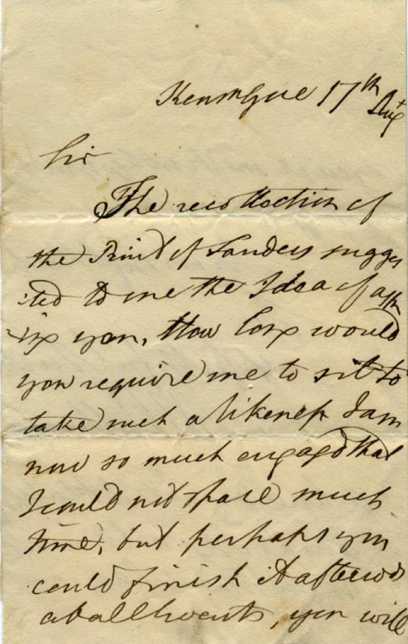 Kensn Gore 17th Augt
Sir
The recollection of
the Print of Sanders sugges
:ted to me the Idea of ask
ing you, How long would
you require me to sit to
take such a likeness I am
now so much engaged that
I could not spare much
time, but perhaps you
could finish it afterwds
at all events, you will